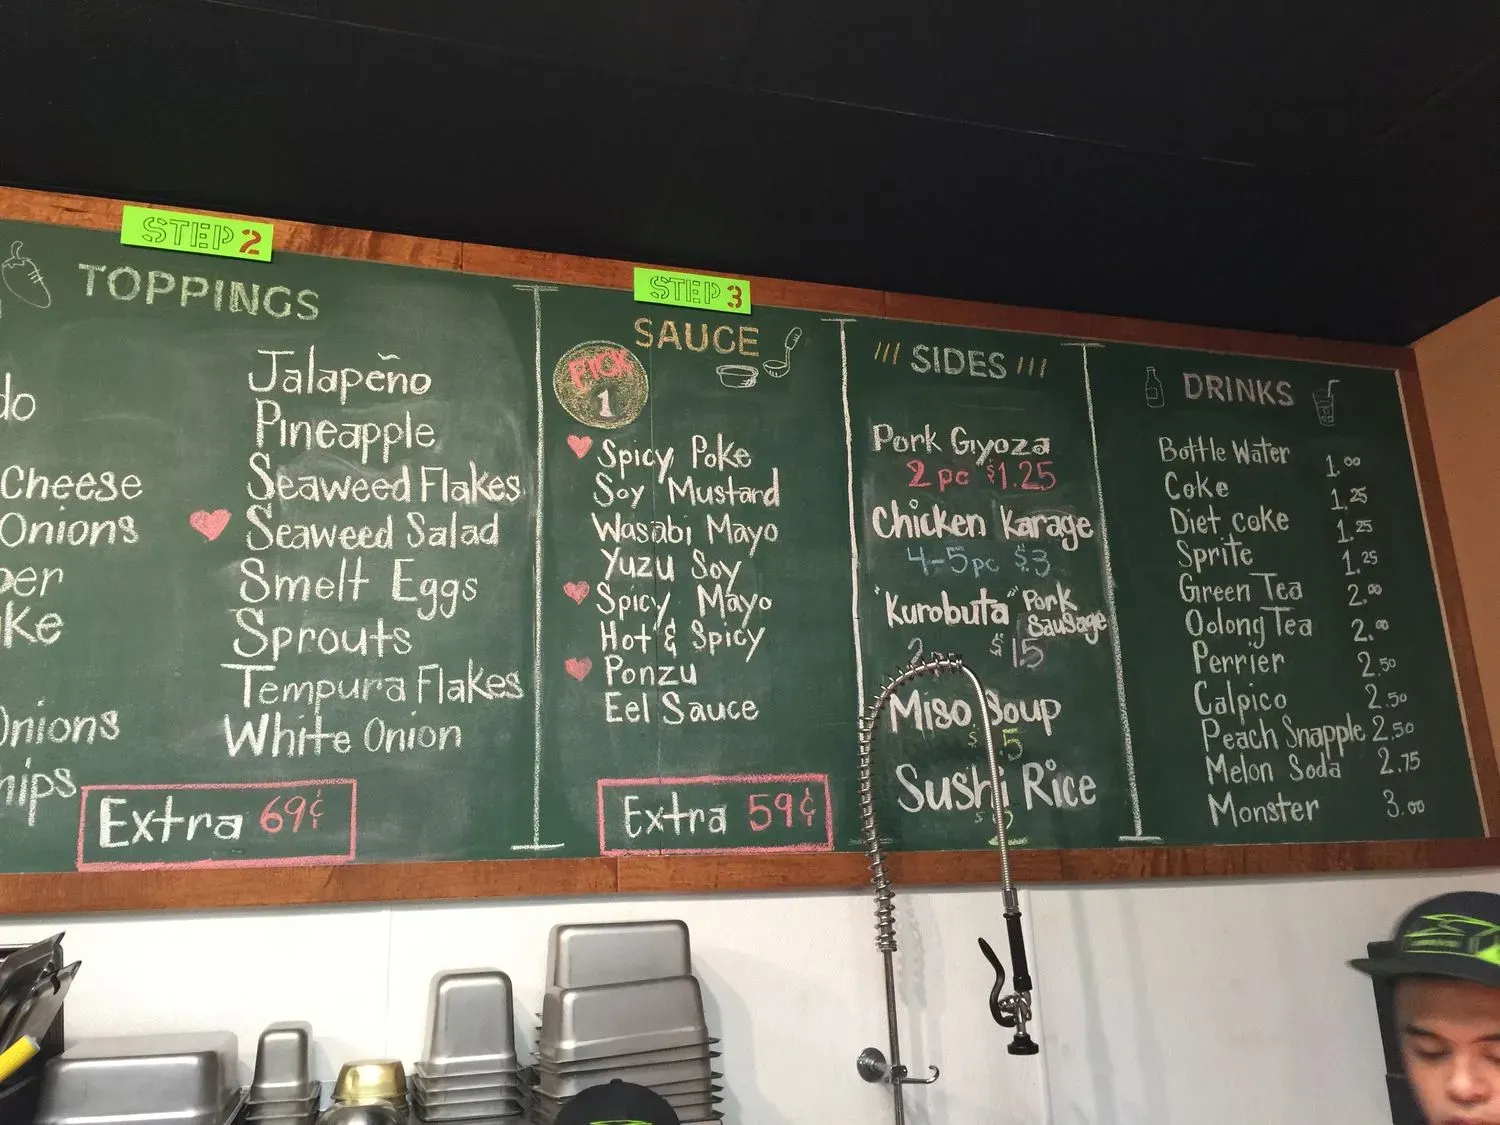 STEP 2
TOPPINGS
Cheese
Onions
Onions
Jalapeño
Pineapple
Seaweed Flakes
Seaweed Salad
Smelt Eggs
Sprouts
Tempura Flakes
White Onion
Extra 69¢
STEP 3
SAUCE
PICK
1
Spicy Poke
Soy Mustard
Wasabi Mayo
Yuzu Soy
Spicy Mayo
Hot & Spicy
Ponzu
Eel Sauce
Extra 59¢
/// SIDES ///
Pork Gyoza
2 pc $1.25
Chicken Karage
4-5pc $3
"Kurobuta" Pork
Sausage
Miso Soup
Sushi Rice
DRINKS
Bottle Water 1.00
Coke 1.25
Diet coke 1.25
Sprite 1.25
Green Tea 2.00
Oolong Tea 2.00
Perrier 2.50
Calpico 2.50
Peach Snapple 2.50
Melon Soda 2.75
Monster 3.00